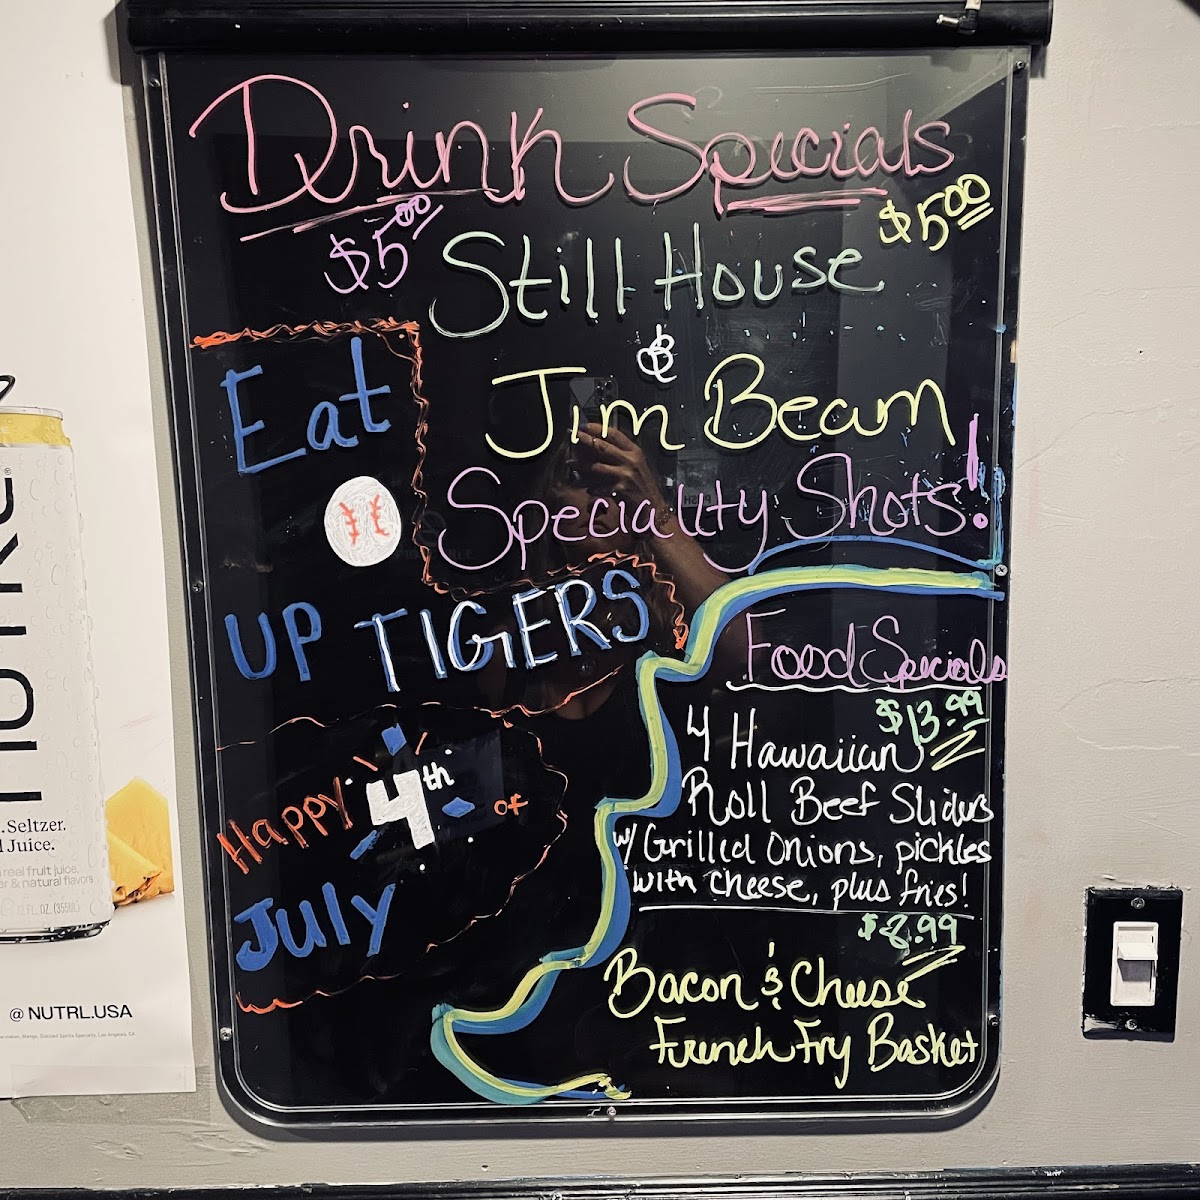 Drink Specials
$5.00
$5.00
Still House
&
Jim Beam
Speciality Shots!
Eat
UP TIGERS
Happy 4th of
July
Food Specials
$13.99
4 Hawaiian
Roll Beef Sliders
w/ Grilled Onions, pickles
with cheese, plus fries!
$8.99
Bacon & Cheese
French Fry Basket
. Seltzer.
l Juice.
real fruit juice,
er & natural flavors
12 FL. OZ. (355ML)
@NUTRL.USA